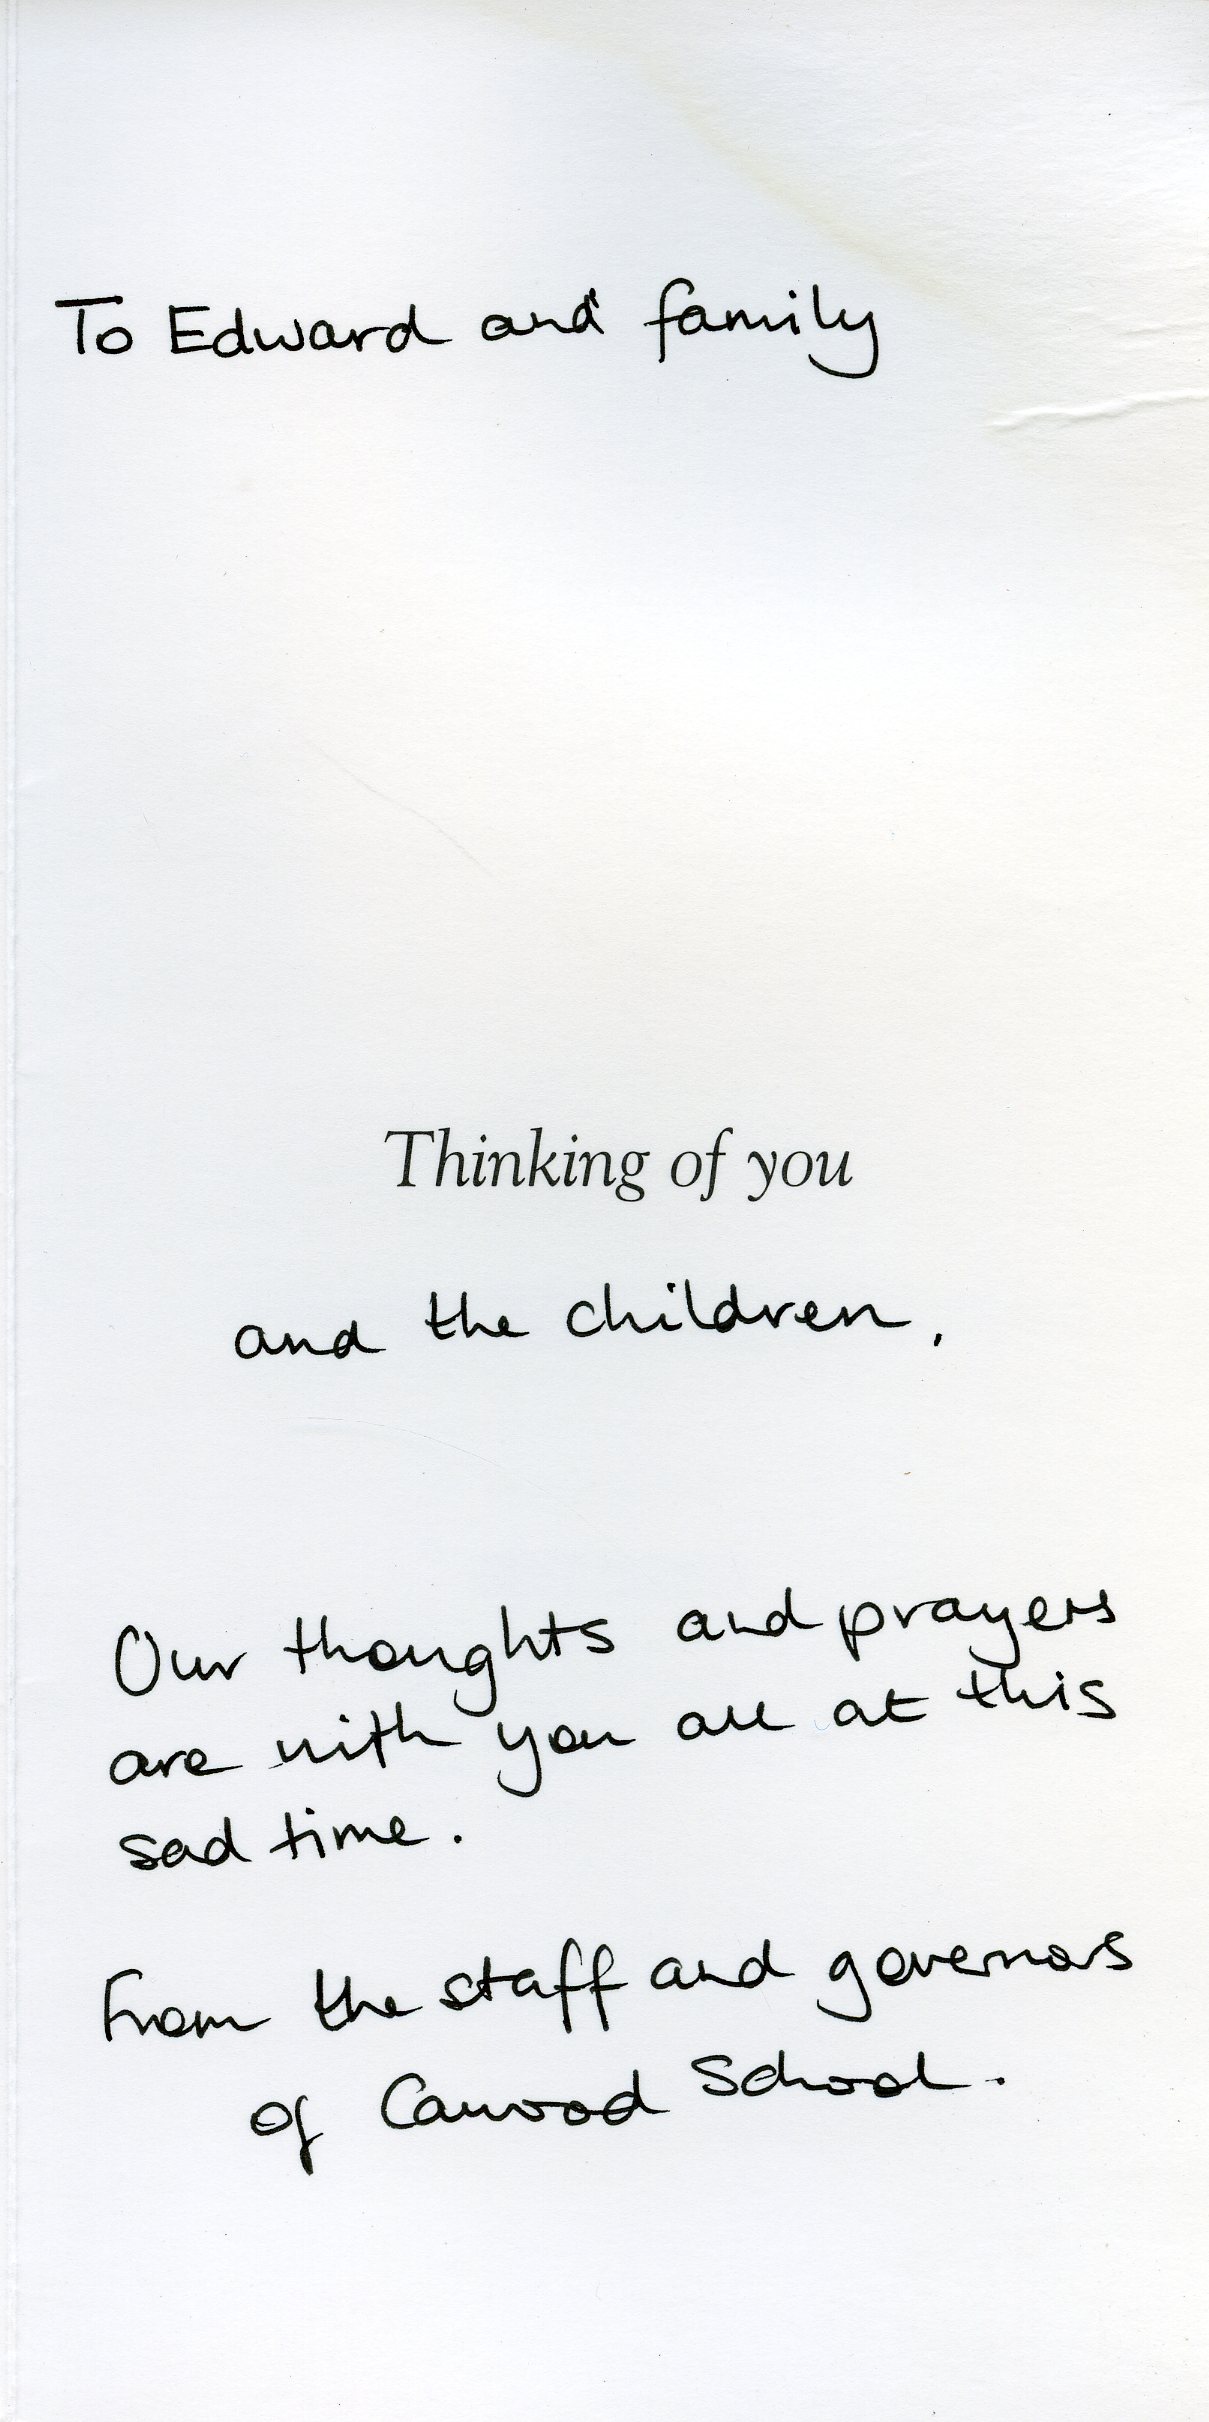 To Edward and family
Thinking of you
and the children,
Our thoughts and prayers
are with you all at this
sad time.
From the staff and governors
of Cawood School.